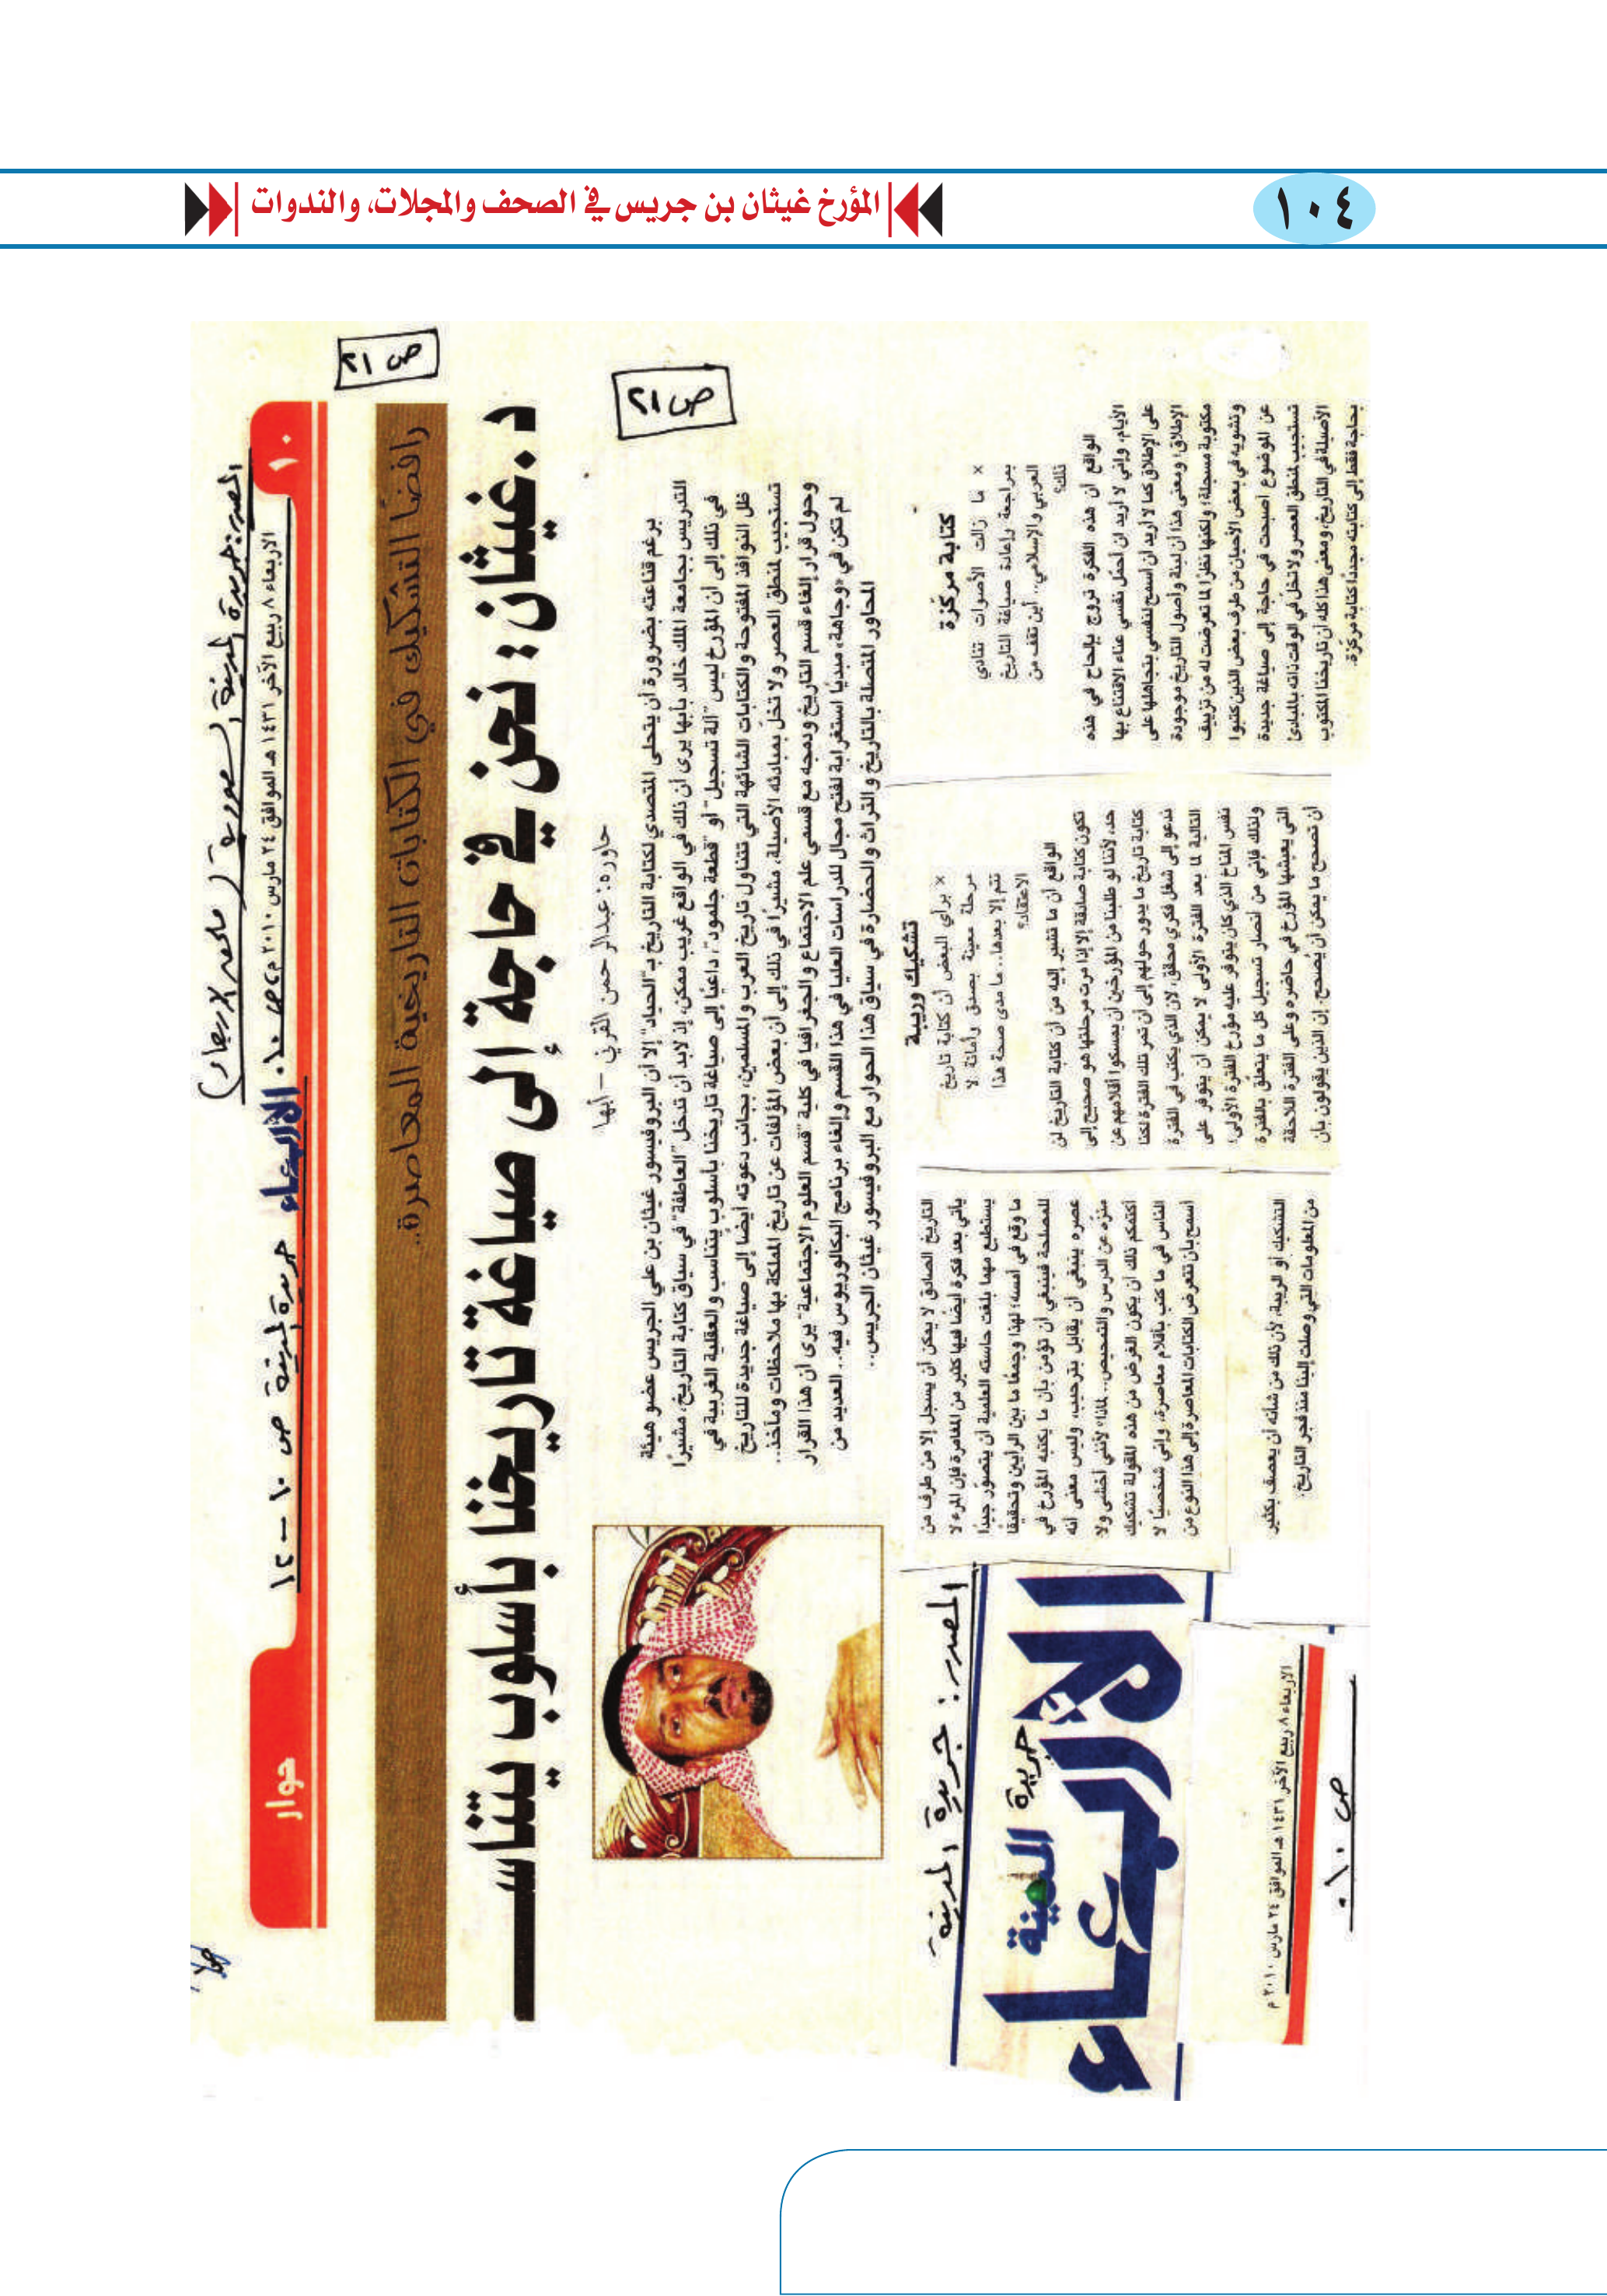 ١٠٤
المؤرخ غيثان بن جريس في الصحف والمجلات، والندوات
المصدر: جريدة المدينة السعودية (ملحق الأربعاء)
الاربعاء ٨ ربيع الآخر ١٤٣١ هـ الموافق ٢٤ مارس ٢٠١٠ م
ص ١٠
١٠
الأربعاء
جريدة المدينة ص ١٠ - ١٢
حوار
ص ٢١
رافضًا التشكيك في الكتابات التاريخية المعاصرة..
د. غيثان: نحن في حاجة إلى صياغة تاريخنا بأسلوب يتناسب
ص ٢١
حاوره: عبدالرحمن القرني - أبها
برغم قناعته بضرورة أن يتحلى المتصدي لكتابة التاريخ بـ"الحياد" إلا أن البروفيسور غيثان بن علي الجريس عضو هيئة
التدريس بجامعة الملك خالد بأبها يرى أن ذلك في الواقع غريب ممكن، إذ لابد أن تدخل "العاطفة" في سياق كتابة التاريخ، مشيرًا
في ذلك إلى أن المؤرخ ليس "آلة تسجيل" أو "قطعة جلمود"، داعيًا إلى صياغة تاريخنا بأسلوب يتناسب والعقلية الغربية في
ظل النوافذ المفتوحة والكتابات الشائهة التي تتناول تاريخ العرب والمسلمين، بجانب دعوته أيضًا إلى صياغة جديدة للتاريخ
تستجيب لمنطق العصر ولا تخل بمبادئه الأصيلة، مشيرًا في ذلك إلى أن بعض المؤلفات عن تاريخ المملكة بها ملاحظات ومآخذ..
وحول قرار إلغاء قسم التاريخ ودمجه مع قسمي علم الاجتماع والجغرافيا في كلية "قسم العلوم الاجتماعية" يرى أن هذا القرار
لم تكن في «وجاهة، مبديًا استغرابه لفتح مجال للدراسات العليا في هذا القسم وإلغاء برنامج البكالوريوس فيه.. العديد من
المحاور المتصلة بالتاريخ والتراث والحضارة في سياق هذا الحوار مع البروفيسور غيثان الجريس..
كتابة مركزة
× ما زالت الأصوات تنادي
بمراجعة وإعادة صياغة التاريخ
العربي والإسلامي.. أين تقف من
ذلك؟
الواقع أن هذه الفكرة تروج بإلحاح في هذه
الأيام، وإني لا أريد لن أحمل نفسي عناء الاقتناع بها
على الإطلاق كما لا أريد أن أسمح لنفسي بتجاهلها على
الإطلاق؛ ومعنى هذا أن لبنة وأصول التاريخ موجودة
مكتوبة مسجلة؛ ولكنها نظرًا لما تعرضت له من تزييف
وتشويه في بعض الأحيان من طرف بعض الذين كتبوا
عن الموضوع أصبحت في حاجة إلى صياغة جديدة
تستجيب لمنطق العصر ولا تخل في الوقت ذاته بالمبادئ
الأصيلة في التاريخ، ومعنى هذا كله أن تاريخنا المكتوب
بحاجة فقط إلى كتابته مجددًا كتابة مركزة.
تشكيك وريبة
× برأي البعض أن كتابة تاريخ
مرحلة معينة بصدق وأمانة لا
تتم إلا بعدها.. ما مدى صحة هذا
الاعتقاد؟
الواقع أن ما تشير إليه من أن كتابة التاريخ لن
تكون كتابة صادقة إلا إذا مرت مرحلتها هو صحيح إلى
حد، لأننا لو طلبنا من المؤرخين أن يمسكوا أقلامهم عن
كتابة تاريخ ما يدور حولهم إلى أن تمر تلك الفترة لكنا
ندعو إلى شغل فكري محقق، لأن الذي يكتب في الفترة
التالية لما بعد الفترة الأولى لا يمكن أن يتوفر على
نفس المناخ الذي كان يتوفر عليه مؤرخ الفترة الأولى؛
ولذلك فإني من أنصار تسجيل كل ما يتعلق بالفترة
التي يعيشها المؤرخ في حاضره وعلى الفترة اللاحقة
أن تصحح ما يمكن أن يُصحح. إن الذين يقولون بأن
التاريخ الصادق لا يمكن أن يسجل إلا من طرف من
يأتي بعد فكرة أيضًا فيها كثير من المغامرة فإن المرء لا
يستطيع مهما بلغت حاسته العلمية أن يتصوّر جيدًا
ما وقع في أمسه؛ لهذا وجمعًا ما بين الرأيين وتحقيقًا
للمصلحة فينبغي أن نؤمن بأن ما يكتبه المؤرخ في
عصره ينبغي أن يقابل بترحيب، وليس معنى أنه
منزّه عن الدرس والتمحيص.. لماذا؟ لأنني أخشى ولا
أكتمكم ذلك أن يكون الغرض من هذه المقولة تشكيك
الناس في ما كتب بأقلام معاصرة، وإني شخصيًا لا
أسمح بأن تتعرض الكتابات المعاصرة إلى هذا النوع من
التشكيك أو الريبة، لأن ذلك من شأنه أن يعصف بكثير
من المعلومات التي وصلت إلينا منذ فجر التاريخ.
المصدر: جريدة المدينة
الأربعاء
جريدة المدينة
الاربعاء ٨ ربيع الآخر ١٤٣١ هـ الموافق ٢٤ مارس ٢٠١٠ م
ص ١٠